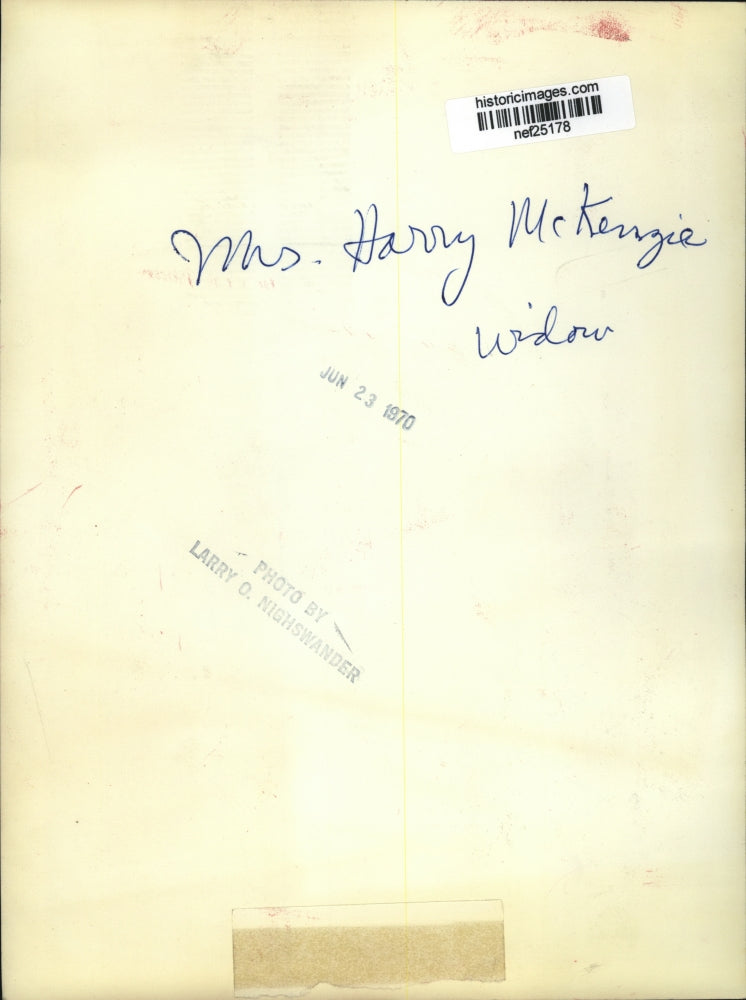 historicimages.com
nef25178
Mrs. Harry McKenzie
widow
JUN 23 1970
PHOTO BY
LARRY O. NIGHSWANDER